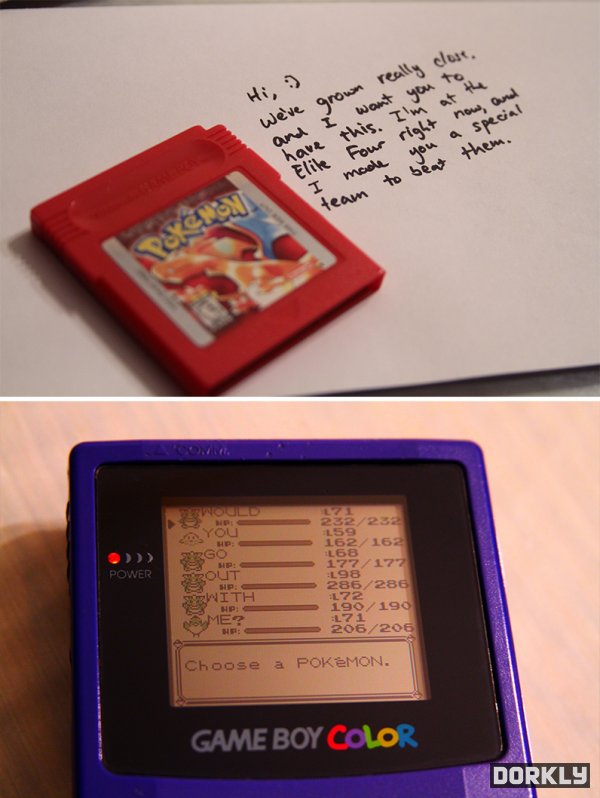 Hi, :)
We've grown really close.
and I want you to
have this. I'm at the
Elite Four right now, and
I made you a special
team to beat them.
POKéMON
COMM.
POWER
WOULD :L71
HP: 232/232
YOU :L59
HP: 162/162
GO :L68
HP: 177/177
OUT :L98
HP: 286/286
WITH :L72
HP: 190/190
ME? :L71
HP: 206/206
Choose a POKéMON.
GAME BOY COLOR
DORKLY